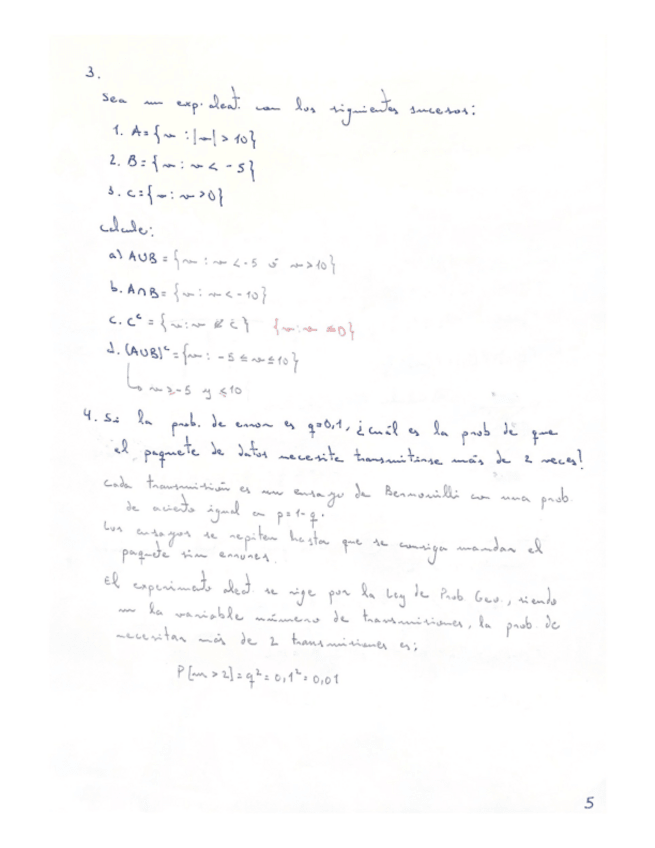 3.
Sea un exp. aleat. con los siguientes sucesos:
1. A={r : |r| > 10}
2. B={r : r < -5}
3. C={r : r > 0}
Calcule:
a) A∪B = {r : r < -5 ó r > 10}
b. A∩B = {r : r < -10}
c. Cᶜ = {r : r ∉ C} {r : r ≤ 0}
d. (A∪B)ᶜ = {r : -5 ≤ r ≤ 10}
↳ r ≥ -5 y ≤ 10
4. Si la prob. de error es q=0,1, ¿cuál es la prob de que
el paquete de datos necesite transmitirse más de 2 veces?
Cada transmisión es un ensayo de Bernouilli con una prob.
de acierto igual a p=1-q.
Los ensayos se repiten hasta que se consiga mandar el
paquete sin errores.
El experimento aleat. se rige por la Ley de Prob Geo., siendo
m la variable número de transmisiones, la prob. de
necesitar más de 2 transmisiones es:
P[m > 2] = q² = 0,1² = 0,01
5